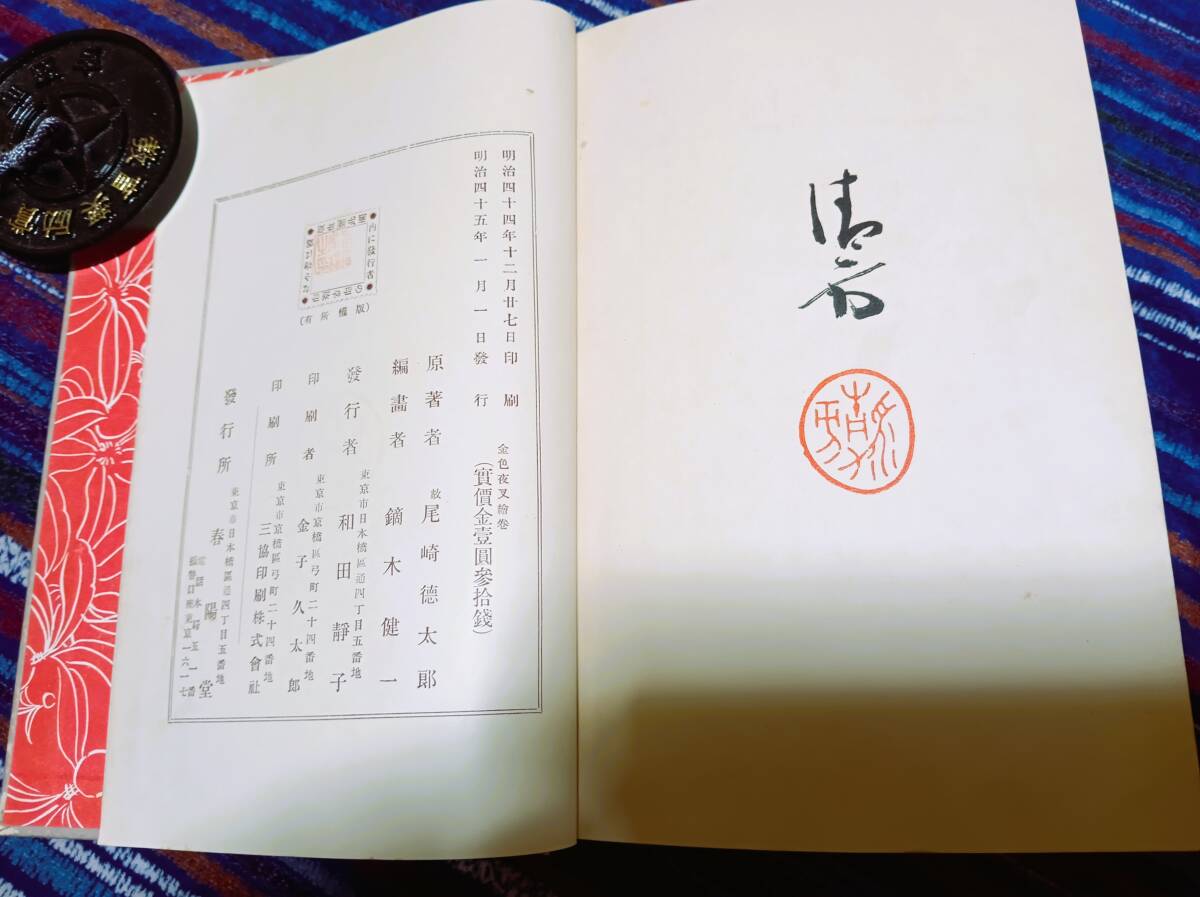 清方
明治四十四年十二月廿七日印刷
明治四十五年一月一日發行
金色夜叉繪卷
(實價金壹圓參拾錢)
原著者 故 尾崎德太郎
編畫者 鏑木健一
東京市日本橋區通四丁目五番地
發行者 和田靜子
東京市京橋區弓町二十四番地
印刷者 金子久太郎
東京市京橋區弓町二十四番地
印刷所 三協印刷株式會社
東京市日本橋區通四丁目五番地
發行所 春陽堂
(版權所有)
教育奬勵賞